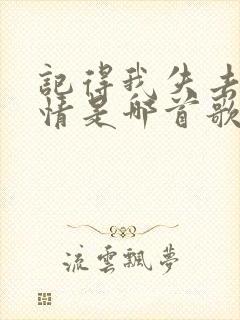 記得我失去
情是那首歌
流雲飄夢